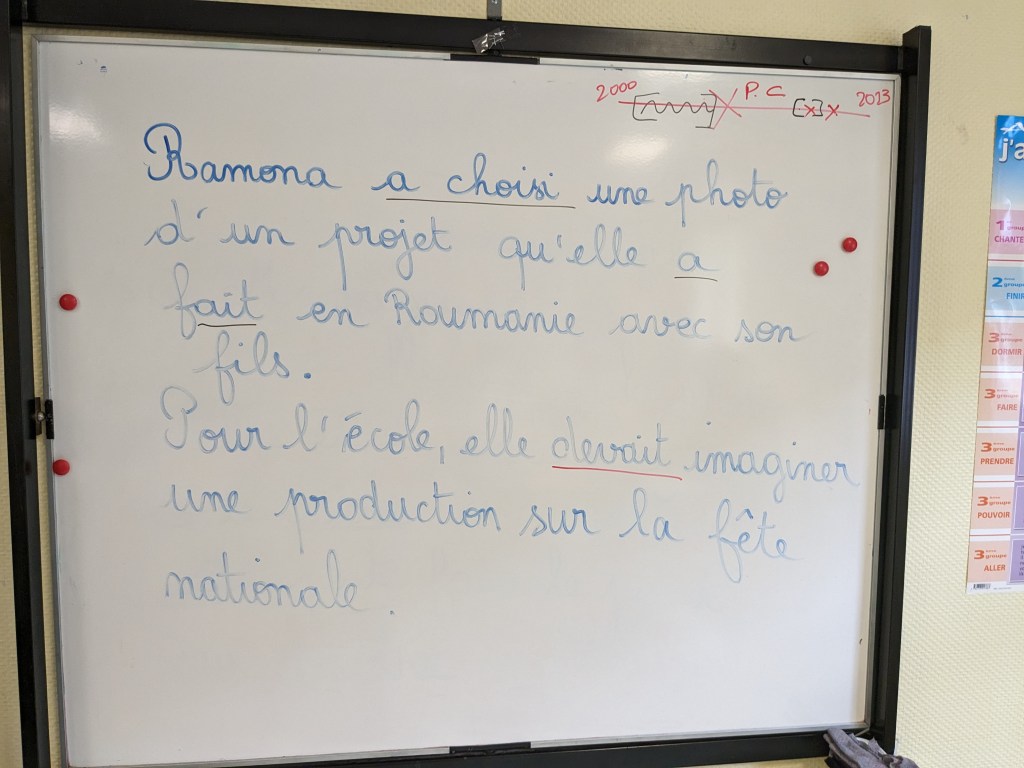 2000 P.C 2013
Ramona a choisi une photo
d'un projet qu'elle a
fait en Roumanie avec son
fils.
Pour l'école, elle devait imaginer
une production sur la fête
nationale.
j'a
1 groupe
CHANTE
2 groupe
FINIR
3 groupe
DORMIR
3 groupe
FAIRE
3 groupe
PRENDRE
3 groupe
POUVOIR
3 groupe
ALLER